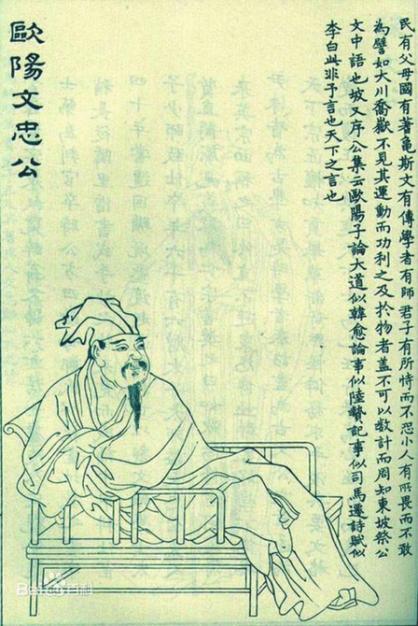 民有父母國有蓍龜斯文有傳學者有師君子有所恃而不恐小人有所畏而不敢
為譬如大川喬嶽不見其運動而功利之及於物者蓋不可以數計而周知東坡祭公
文中語也坡又序公集云歐陽子論大道似韓愈論事似陸贄記事似司馬遷詩賦似
李白此非予言也天下之言也
歐陽文忠公
Bai百科